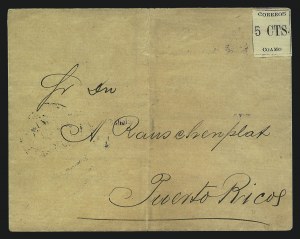 CORREOS
5 CTS.
COAMO
Sr Dn
A. Rauschenplat
Puerto Rico